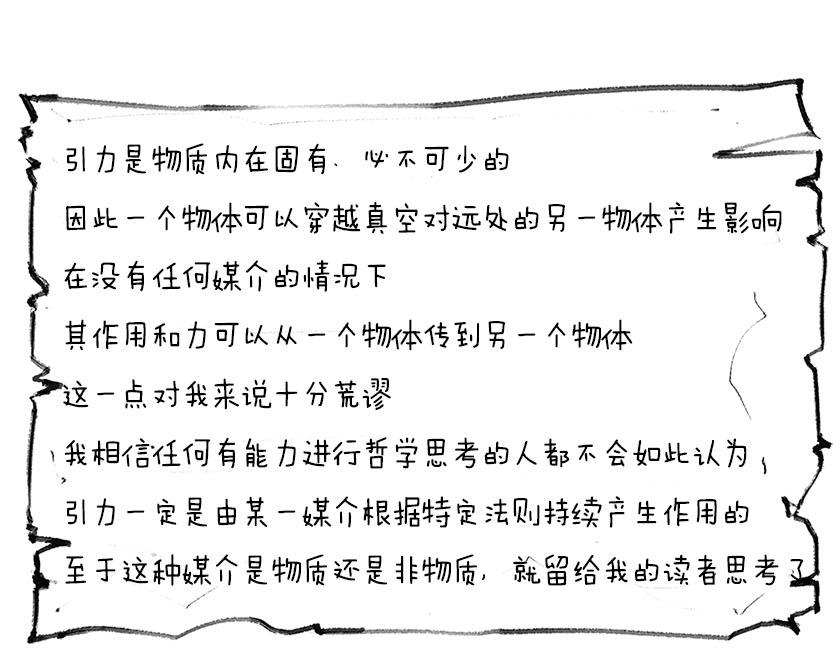 引力是物质内在固有、必不可少的
因此一个物体可以穿越真空对远处的另一物体产生影响
在没有任何媒介的情况下
其作用和力可以从一个物体传到另一个物体
这一点对我来说十分荒谬
我相信任何有能力进行哲学思考的人都不会如此认为，
引力一定是由某一媒介根据特定法则持续产生作用的
至于这种媒介是物质还是非物质，就留给我的读者思考了